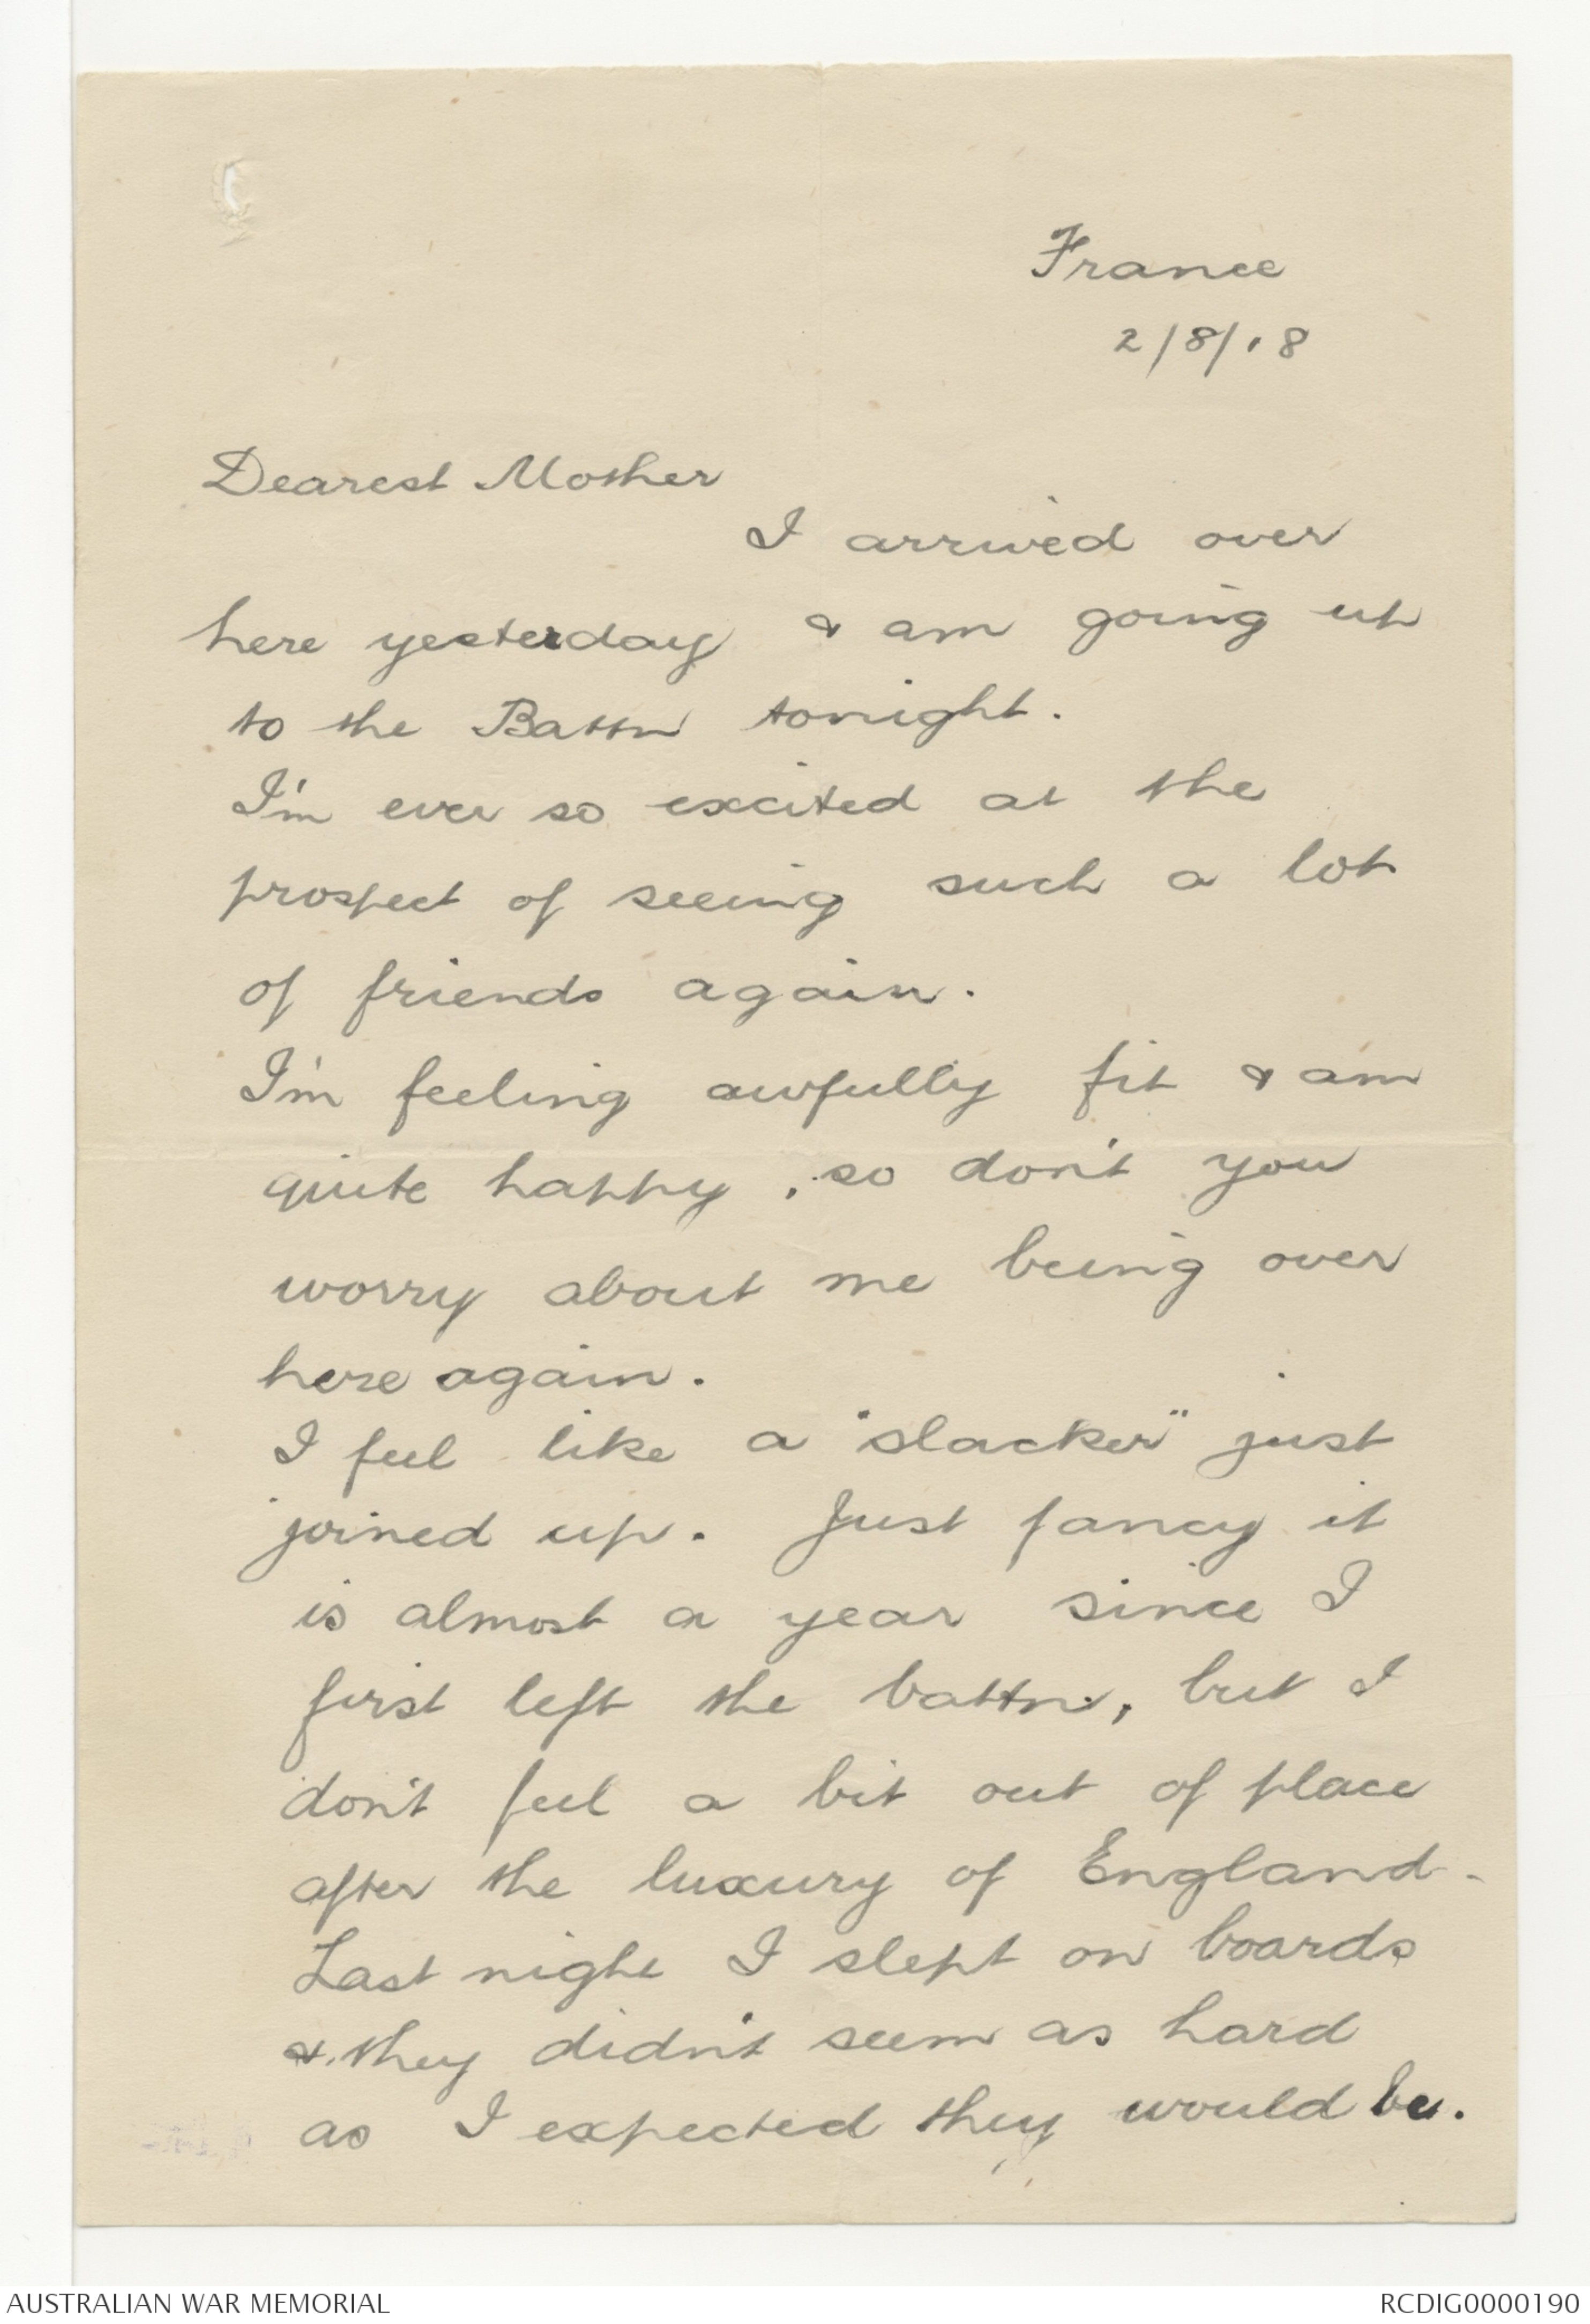 France
2/8/18
Dearest Mother
I arrived over
here yesterday & am going up
to the Battn tonight.
I'm ever so excited at the
prospect of seeing such a lot
of friends again.
I'm feeling awfully fit & am
quite happy, so don't you
worry about me being over
here again.
I feel like a "slacker" just
joined up. Just fancy it
is almost a year since I
first left the battn, but I
don't feel a bit out of place
after the luxury of England.
Last night I slept on boards
& they didn't seem as hard
as I expected they would be.
AUSTRALIAN WAR MEMORIAL
RCDIG0000190